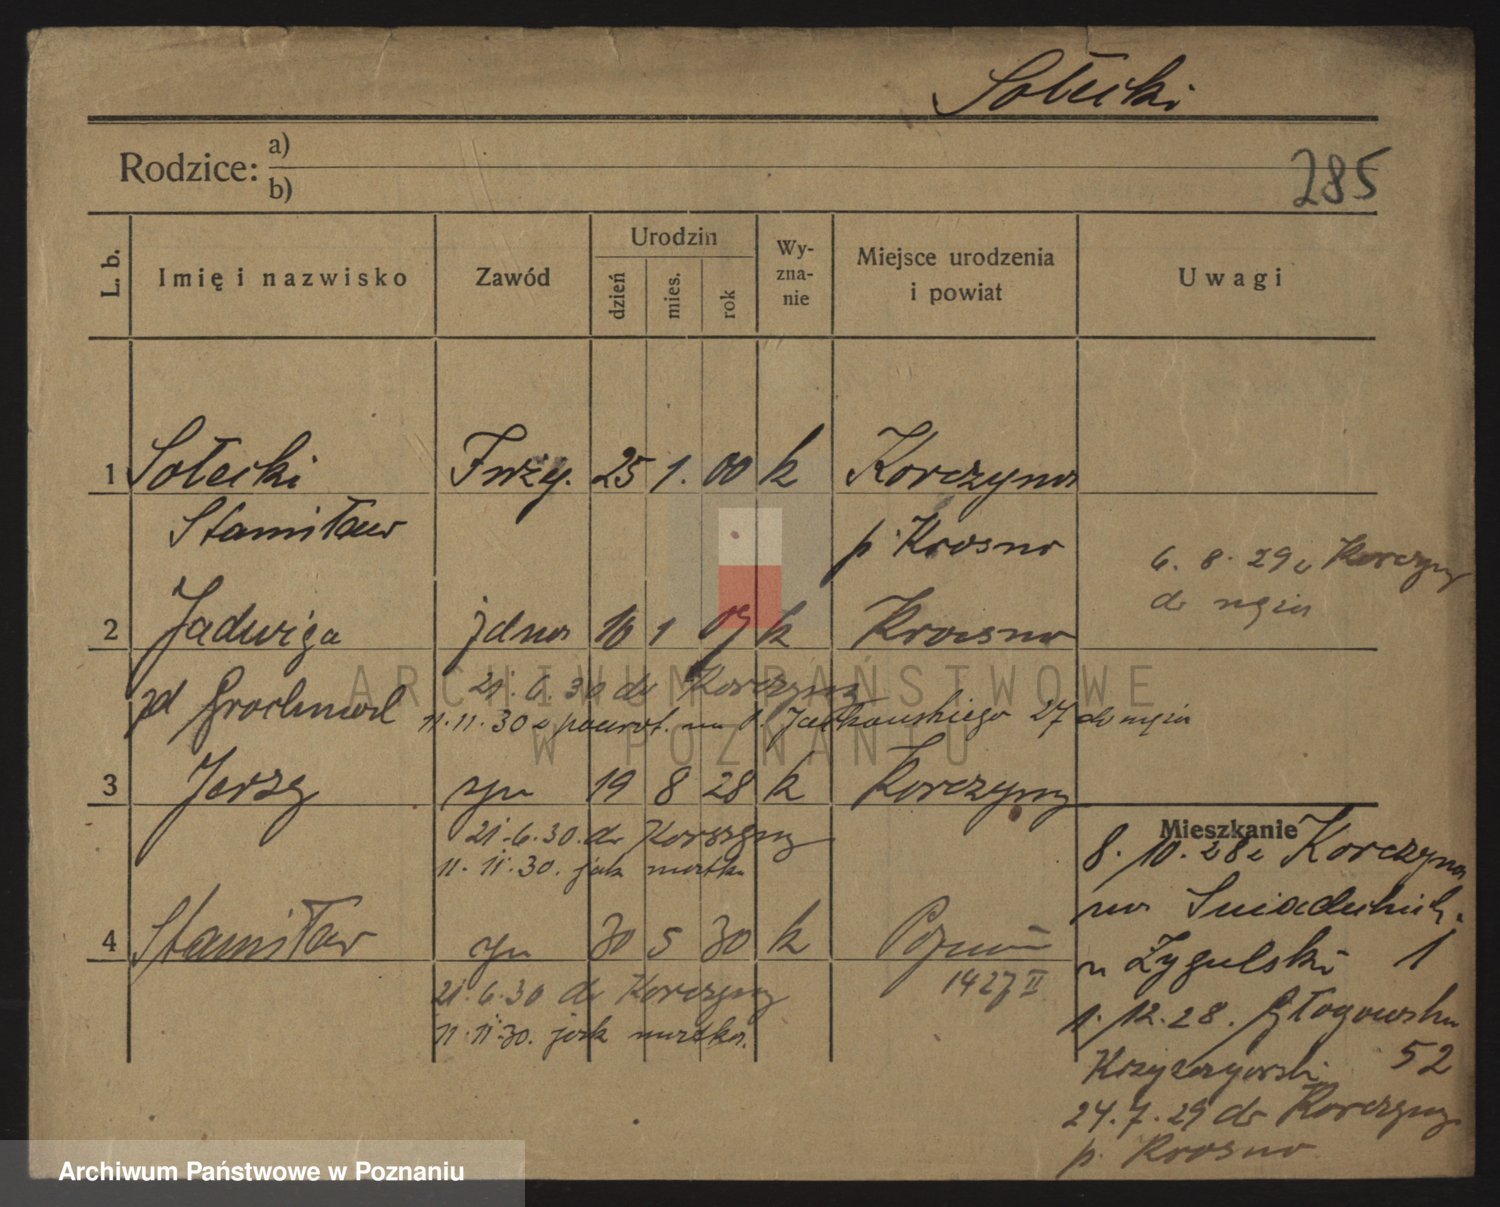 Sołecki
Rodzice: a)
b)
285
L. b.
Imię i nazwisko
Zawód
Urodzin
dzień
mies.
rok
Wy-
zna-
nie
Miejsce urodzenia
i powiat
Uwagi
1 Sołecki Fryz. 25 1. 00 k Korczyna
Stanisław p. Krosno
6. 8. 29 z Korczyny
do męża
2 Jadwiga żona 16 1 09 k Krosno
21. 6. 30 do Korczyny
zd Grochmal 11. 11. 30 z powrot. na 27 do męża
3 Jerzy syn 19 8 28 k Korczyny
21. 6. 30. do Korczyny
11. 11. 30. jak matka
4 Stanisław syn 30 5 30 k Poznań
1427 II
21. 6. 30 do Korczyny
11. 11. 30. jak matka.
Mieszkanie
8. 10. 28 z Korczyna
na Śniadeckich
u Zygulski 1
1. 12. 28. Głogowska
52
24. 7. 29 do Korczyny
p. Krosno
ARCHIWUM PAŃSTWOWE
W POZNANIU
Archiwum Państwowe w Poznaniu